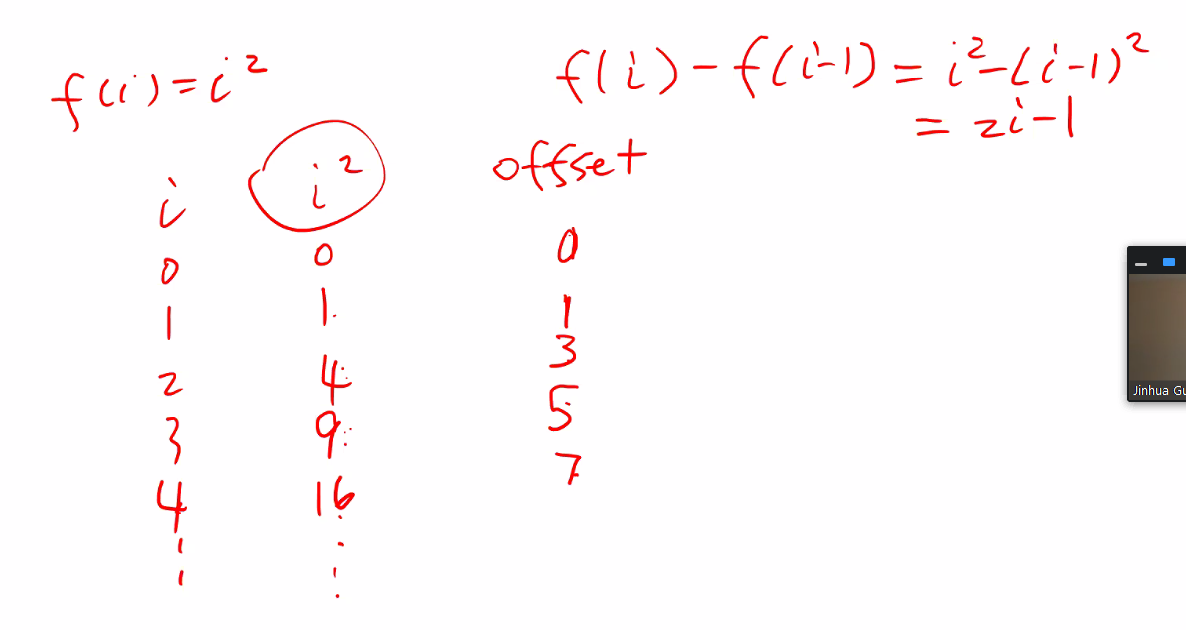 f(i) = i²
f(i) - f(i-1) = i² - (i-1)²
= 2i - 1
i i² offset
0 0 0
1 1 1
2 4 3
3 9 5
4 16 7
Jinhua Gu